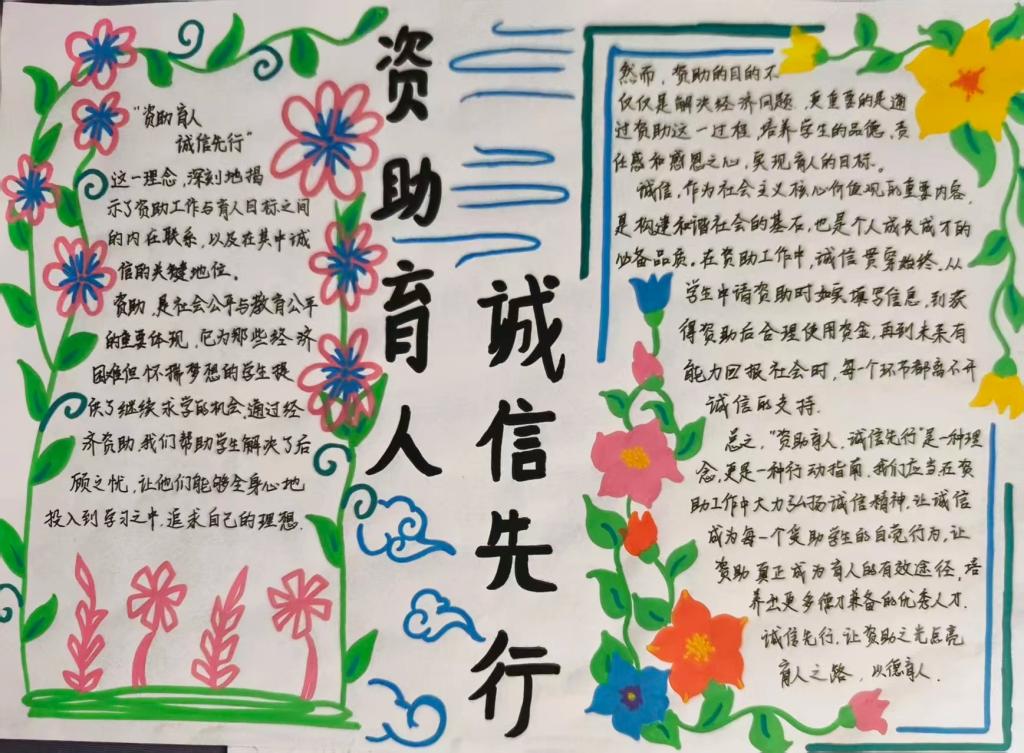 资助育人
诚信先行
“资助育人
诚信先行”
这一理念，深刻地揭
示了资助工作与育人目标之间
的内在联系，以及在其中诚
信的关键地位。
资助，是社会公平与教育公平
的重要体现，它为那些经济
困难但怀揣梦想的学生提
供了继续求学的机会，通过经
济资助，我们帮助学生解决了后
顾之忧，让他们能够全身心地
投入到学习之中，追求自己的理想。
然而，资助的目的不
仅仅是解决经济问题，更重要的是通
过资助这一过程，培养学生的品德，责
任感和感恩之心，实现育人的目标。
诚信，作为社会主义核心价值观的重要内容，
是构建和谐社会的基石，也是个人成长成才的
必备品质。在资助工作中，诚信贯穿始终，从
学生申请资助时如实填写信息，到获
得资助后合理使用资金，再到未来有
能力回报社会时，每一个环节都离不开
诚信的支持。
总之，“资助育人，诚信先行”是一种理
念，更是一种行动指南，我们应当在资
助工作中大力弘扬诚信精神，让诚信
成为每一个受助学生的自觉行为，让
资助真正成为育人的有效途径，培
养出更多德才兼备的优秀人才。
诚信先行，让资助之光点亮
育人之路，以德育人。